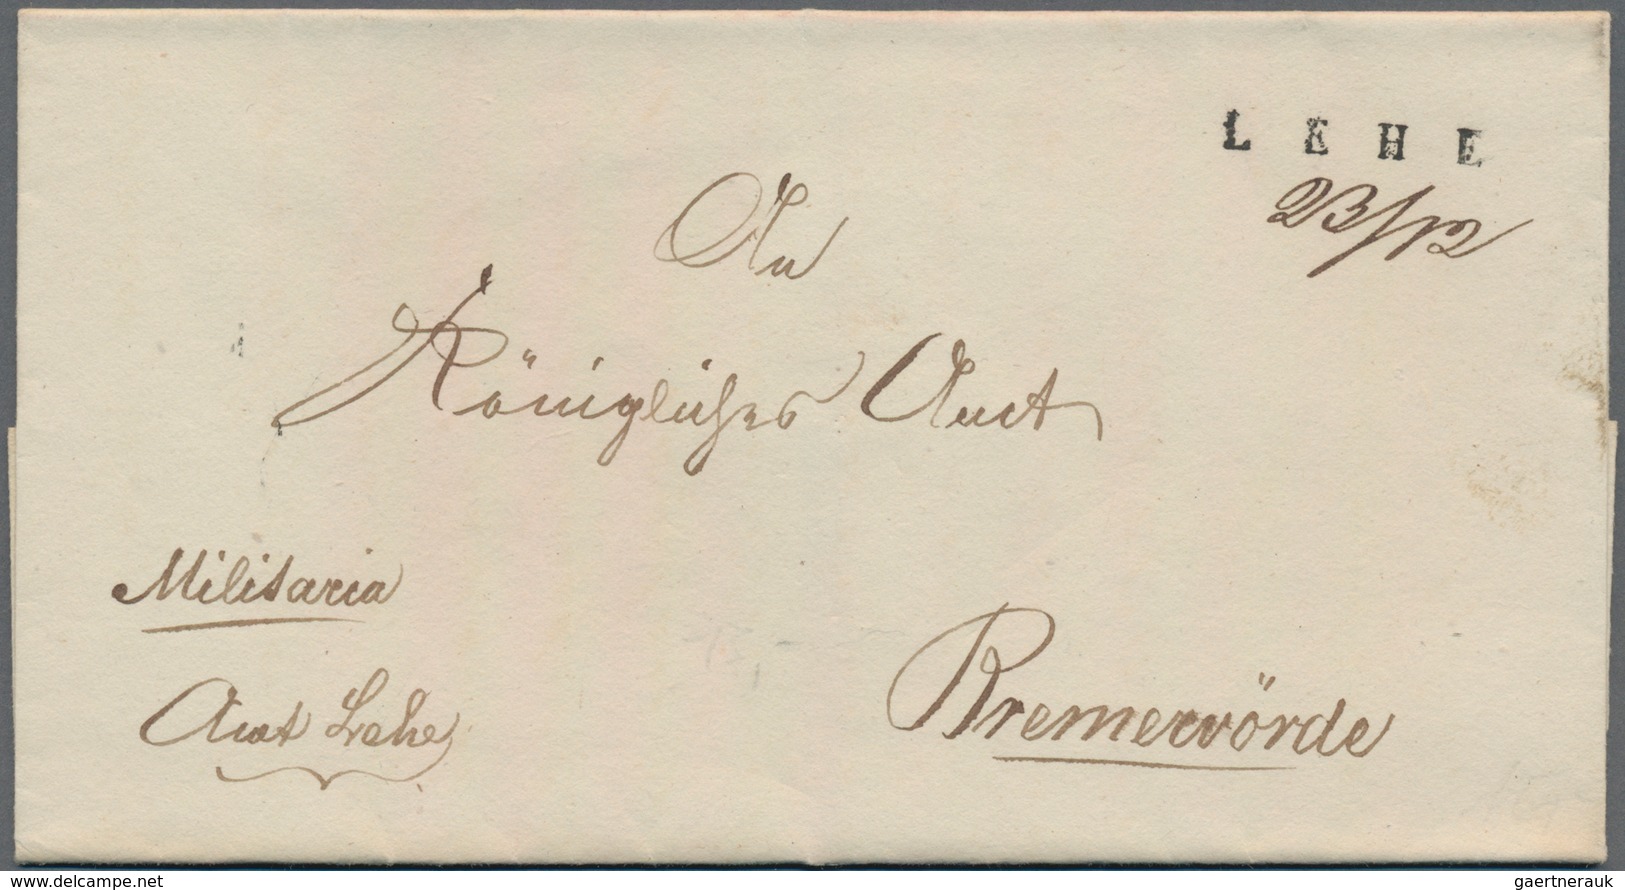 LEHE
23/12
An
Königliches Amt
Militaria
Amt Lehe
Bremervörde
www.delcampe.net
gaertnerauk